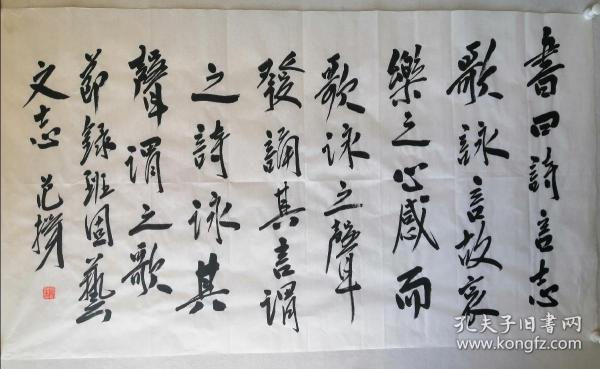 書曰詩言志
歌詠言故哀
樂之心感而
歌詠之聲
發誦其言謂
之詩詠其
聲謂之歌
節錄班固藝
文志 范
孔夫子旧書网
www.kongfz.com